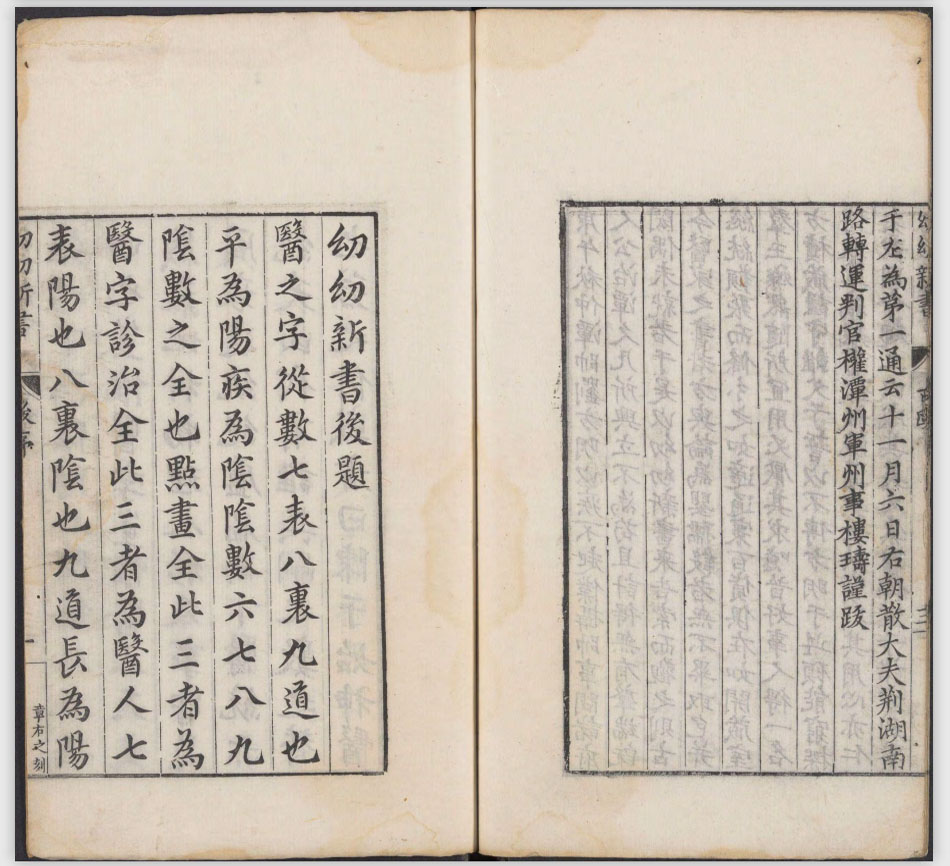 幼幼新書
于左為第一通云十一月六日右朝散大夫荆湖南
路轉運判官權潭州軍州事樓璹謹跋
幼幼新書後題
醫之字從數七表八裏九道也
平為陽疾為陰陰數六七八九
陰數之全也點畫全此三者為
醫字診治全此三者為醫人七
表陽也八裏陰也九道長為陽
幼幼新書
後序
一
章右之刻